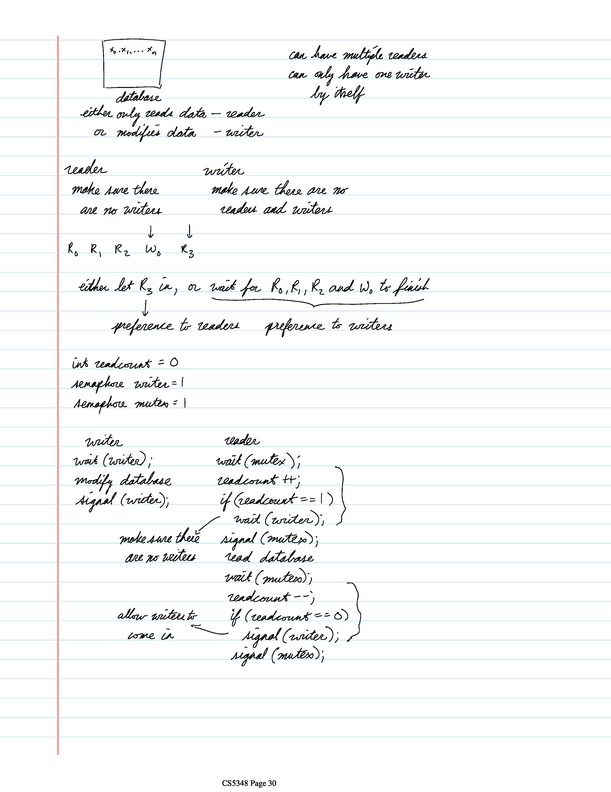 x₀, x₁, ... xₙ
database
can have multiple readers
can only have one writer
by itself
either only reads data – reader
or modifies data – writer
reader
make sure there
are no writers
writer
make sure there are no
readers and writers
↓ ↓
R₀ R₁ R₂ W₀ R₃
either let R₃ in, or wait for R₀, R₁, R₂ and W₀ to finish
↓
preference to readers preference to writers
int readcount = 0
semaphore writer = 1
semaphore mutex = 1
writer
wait (writer);
modify database
signal (writer);
reader
wait (mutex);
readcount ++;
if (readcount == 1)
wait (writer);
make sure there
are no writers
signal (mutex);
read database
wait (mutex);
readcount --;
if (readcount == 0)
allow writers to
come in
signal (writer);
signal (mutex);
CS5348 Page 30